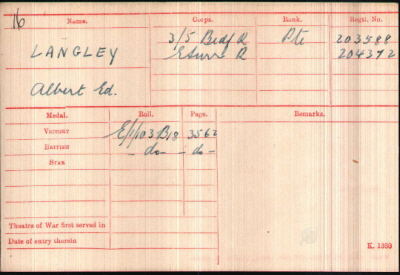 16
Name. Corps. Rank. Regtl. No.
LANGLEY 3/5 Bedf R Pte 203588
E Surr R 204372
Albert Ed.
Medal. Roll. Page. Remarks.
Victory E/1/103 B18 3562
British - do - - do -
Star
Theatre of War first served in
Date of entry therein
K. 1380